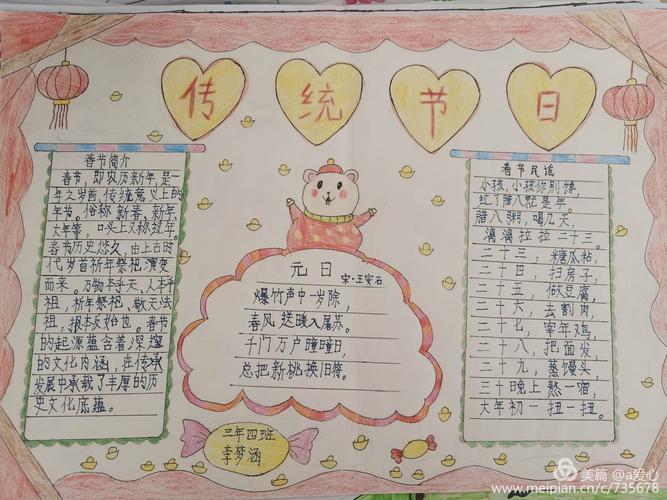 传统节日
春节简介
春节，即农历新年，是一
年之岁首，传统意义上的
年节。俗称新春、新年、
大年等，口头上又称过年。
春节历史悠久，由上古时
代岁首祈年祭祀演变
而来。万物本乎天，人本乎
祖，祈年祭祀、敬天法
祖，报本反始也。春节
的起源蕴含着深邃
的文化内涵，在传承
发展中承载了丰厚的历
史文化底蕴。
元日
宋·王安石
爆竹声中一岁除，
春风送暖入屠苏。
千门万户曈曈日，
总把新桃换旧符。
三年四班
李梦涵
春节民谣
小孩，小孩你别馋，
过了腊八就是年。
腊八粥，喝几天，
漓漓拉拉二十三。
二十三，糖瓜粘，
二十四，扫房子，
二十五，做豆腐，
二十六，去割肉，
二十七，宰年鸡，
二十八，把面发，
二十九，蒸馒头
三十日晚上熬一宿，
大年初一扭一扭。
美篇@a爱心
www.meipian.cn/c/735678